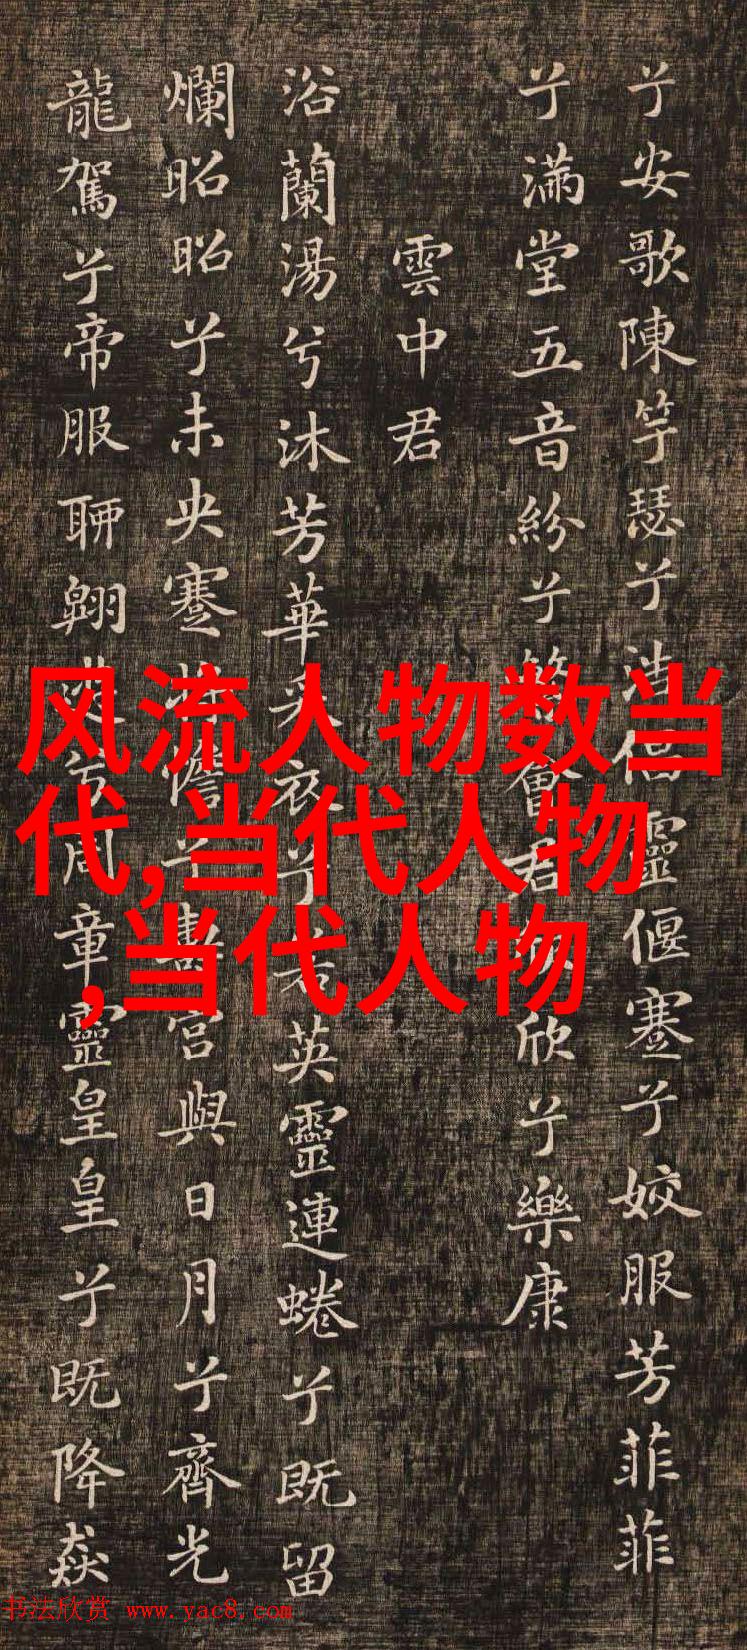 兮安歌陳竽瑟兮浩倡靈偃蹇兮姣服芳菲菲
兮滿堂五音紛兮繁會君欣欣兮樂康
雲中君
浴蘭湯兮沐芳華采衣兮若英靈連蜷兮既留
爛昭昭兮未央蹇將憺兮壽宮與日月兮齊光
龍駕兮帝服聊翱遊兮周章靈皇皇兮既降猋
风流人物数当
代,当代人物
,当代人物
书法欣赏 www.yac8.com